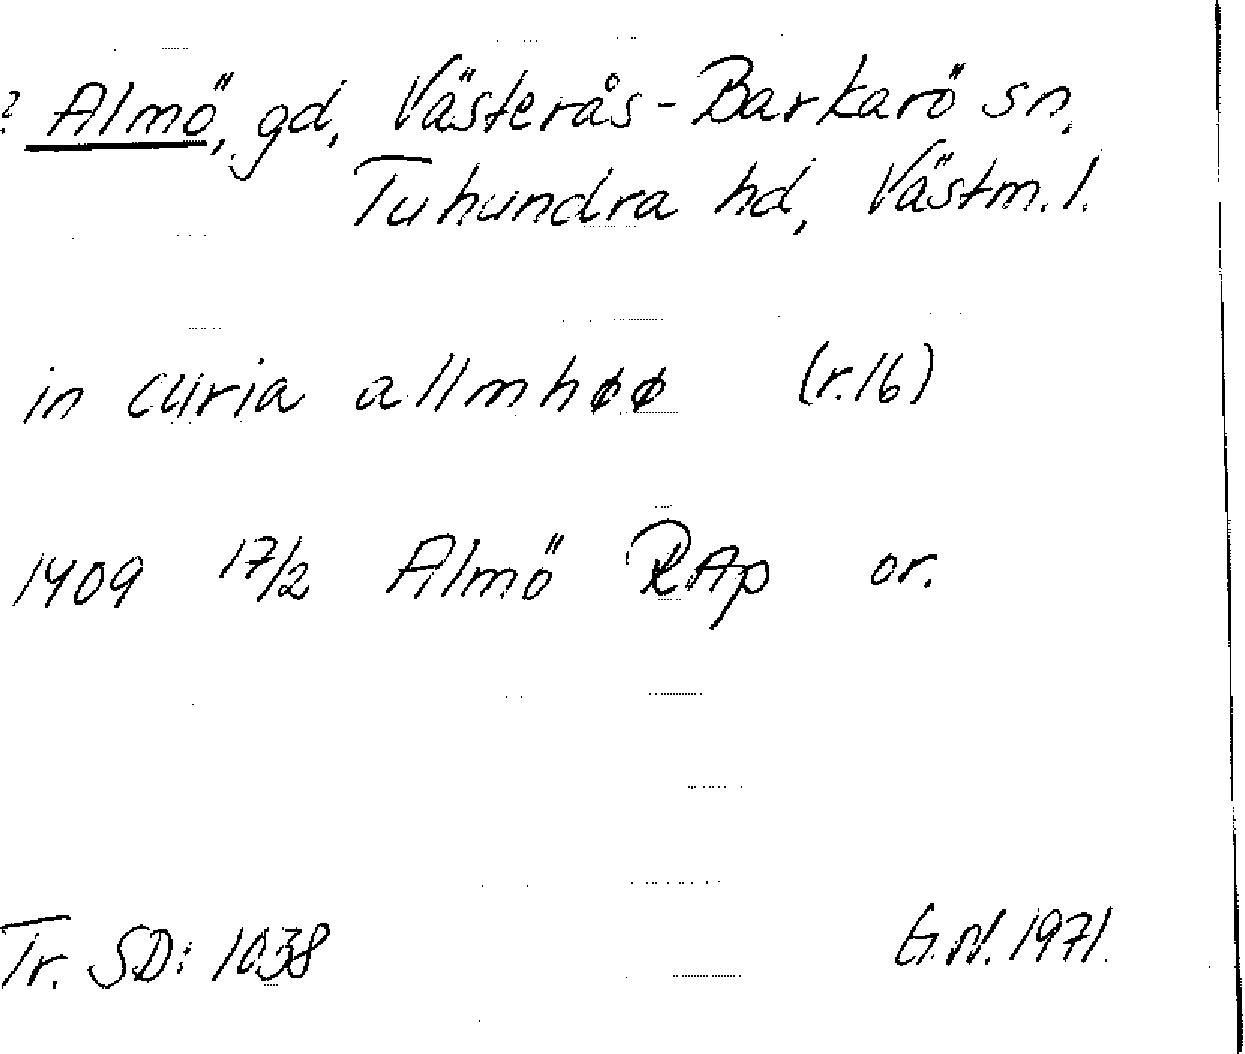 ? Almö, gd, Västerås-Barkarö sn,
Tuhundra hd, Västm. l.
in curia allmhøø (r.16)
1409 17/2 Almö RAp or.
Tr. SD: 1038 G.N. 1971.